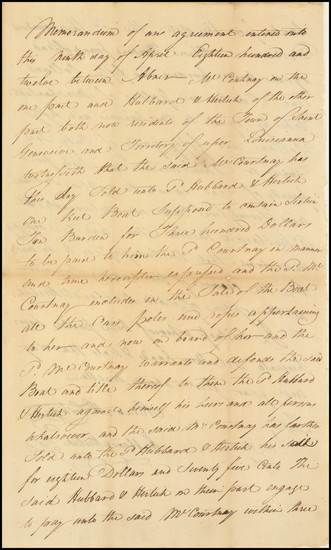 Memorandum of an agreement entered into
this ninth day of April Eighteen hundred and
twelve between Abner McCourtnay on the
one part and Hubbard & Herlich of the other
part both now residents of the Town of Saint
Genevieve and Territory of upper Louisiana
Witnesseth that the said McCourtnay has
this day Sold unto Sd Hubbard & Herlich
one Keel Boat Supposed to contain
Ton Burden for Three hundred Dollars
to be paid to him the Sd Courtnay in manner
and time hereafter expressed and the Sd Mc
Courtnay includes in the Sale of the Boat
all the Oars poles and ropes appertaining
to her and now on board of her and the
Sd McCourtnay warrants and defends the said
Boat and title thereof to them the Sd Hubbard
& Herlich against himself his heirs and all persons
whatsoever and the said McCourtnay has further
Sold unto the Sd Hubbard & Herlich his
for eighteen Dollars and Seventy five Cents The
said Hubbard & Herlich on their part engage
to pay unto the said McCourtnay within three